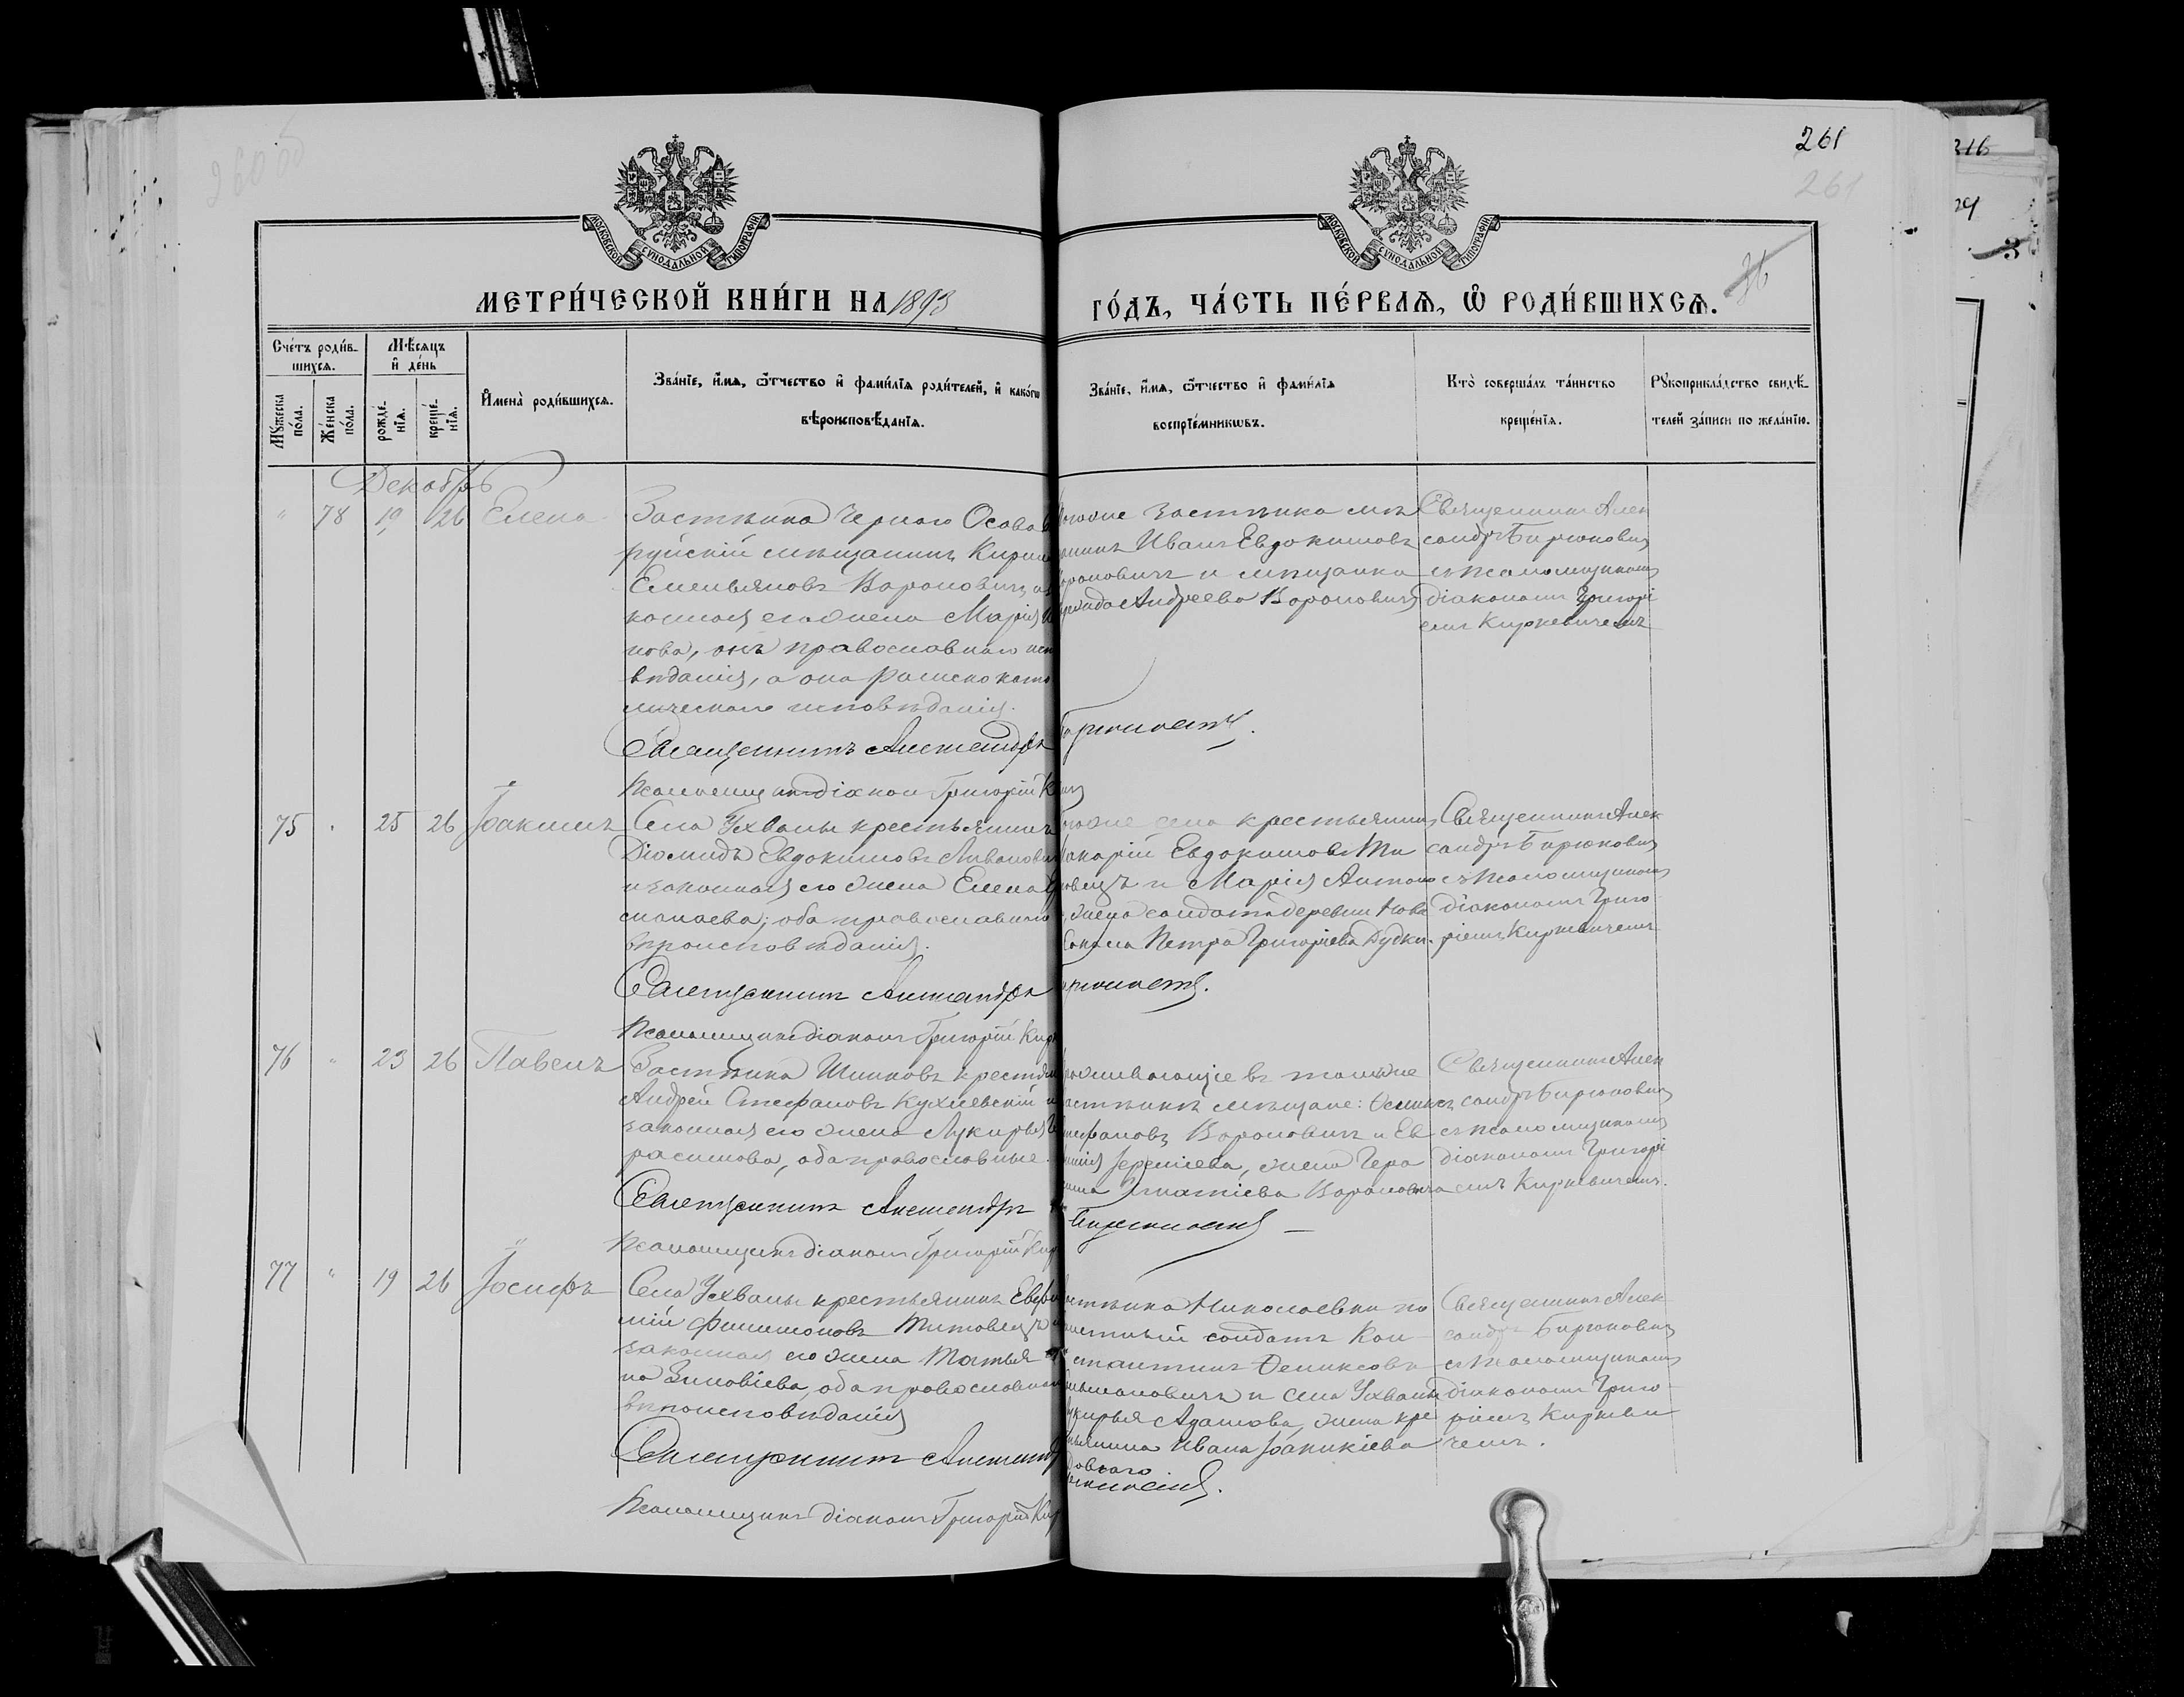 261
261
316
МОСКОВСКОЙ СУНОДАЛЬНОЙ ТИПОГРАФІИ
МОСКОВСКОЙ СУНОДАЛЬНОЙ ТИПОГРАФІИ
МЕТРИ́ЧЕСКОЙ КНИ́ГИ НА 1893
ГО́ДЪ, ЧА́СТЬ ПЕ́РВАѦ, Ѡ РОДИ́ВШИХСѦ.
36
Сче́тъ роди́в-
шихсѧ.
Мꙋ́жеска по́ла.
Же́нска по́ла.
Мѣ́сѧцъ
и҆ де́нь
рожде́-
нїѧ.
креще́-
нїѧ.
И҆мена̀ роди́вшихсѧ.
Зва́нїе, и҆́мѧ, ѻ҆́тчество и҆ фами́лїѧ роди́телей, и҆ како́гѡ
вѣроисповѣ́данїѧ.
Зва́нїе, и҆́мѧ, ѻ҆́тчество и҆ фами́лїѧ
воспрїе́мникѡвъ.
Кто̀ соверша́лъ та́инство
креще́нїѧ.
Рꙋкоприкла́дство свидѣ́-
телей за́писи по жела́нїю.
Декабрь
" 78 19 26 Елена
Застѣнка Чернаго Осова
руйскій мѣщанинъ Кирил
Емельяновъ Вороновичъ
конная его жена Марія
нова, онъ православнаго исп
вѣданія, а она римско като
лическаго исповѣданія.
Священникъ Александръ
Псаломщикъ діаконъ Григорій
тогоже застѣнка мѣ
Иванъ Евдокимовъ
Вороновичъ и мѣщанка
Андреева Вороновичъ
Бирюковичъ.
Священникъ Алек
сандръ Бирюковичъ
съ псаломщикомъ
діакономъ Григорі
емъ Киркевичемъ
75 " 25 26 Іоакимъ
Села Ухвалы крестьянинъ
Діомидъ Евдокимовъ
и законная его жена Елена
оба православнаго
вѣроисповѣданія.
Священникъ Александръ
Псаломщикъ діаконъ Григорій Кирк
тогоже села крестьянинъ
Макарій Евдокимовъ Ти
товецъ и Марія Антоно
жена солдата деревни Нова
Сокола Петра Григорьева Дудки.
Бирюковичъ.
Священникъ Алек
сандръ Бирюковичъ
съ псаломщикомъ
діакономъ Григо
ріемъ Киркевичемъ
76 " 23 26 Павелъ
Застѣнка крестьян
Андрей Стефановъ Кухлевскій и
законная его жена Лукирья Ге
расимова, оба православные.
Священникъ Александръ
Псаломщикъ діаконъ Григорій Кир
проживающіе въ томже
застѣнкѣ мѣщане:
Стефановъ Вороновичъ и Ев
Іереміева, жена Гера
сима Игнатіева Вороновича
Бирюковичъ
Священникъ Алек
сандръ Бирюковичъ
съ псаломщикомъ
діакономъ Григорі
емъ Киркевичемъ.
77 " 19 26 Іосифъ
Села Ухвалы крестьянинъ Евфи
мій Филимоновъ Титовецъ и
законная его жена Татья
на Зиновіева, оба православнаго
вѣроисповѣданія
Священникъ Александр
Псаломщикъ діаконъ Григорій Кир
застѣнка Николаевки
солдатъ Кон
стантинъ Феликсовъ
и села Ухвалы
Лукирья Адамова, жена кре
стьянина Ивана Іоаникіева
Бирюковичъ.
Священникъ Алек
сандръ Бирюковичъ
съ псаломщикомъ
діакономъ Григо
ріемъ Киркеви
чемъ.